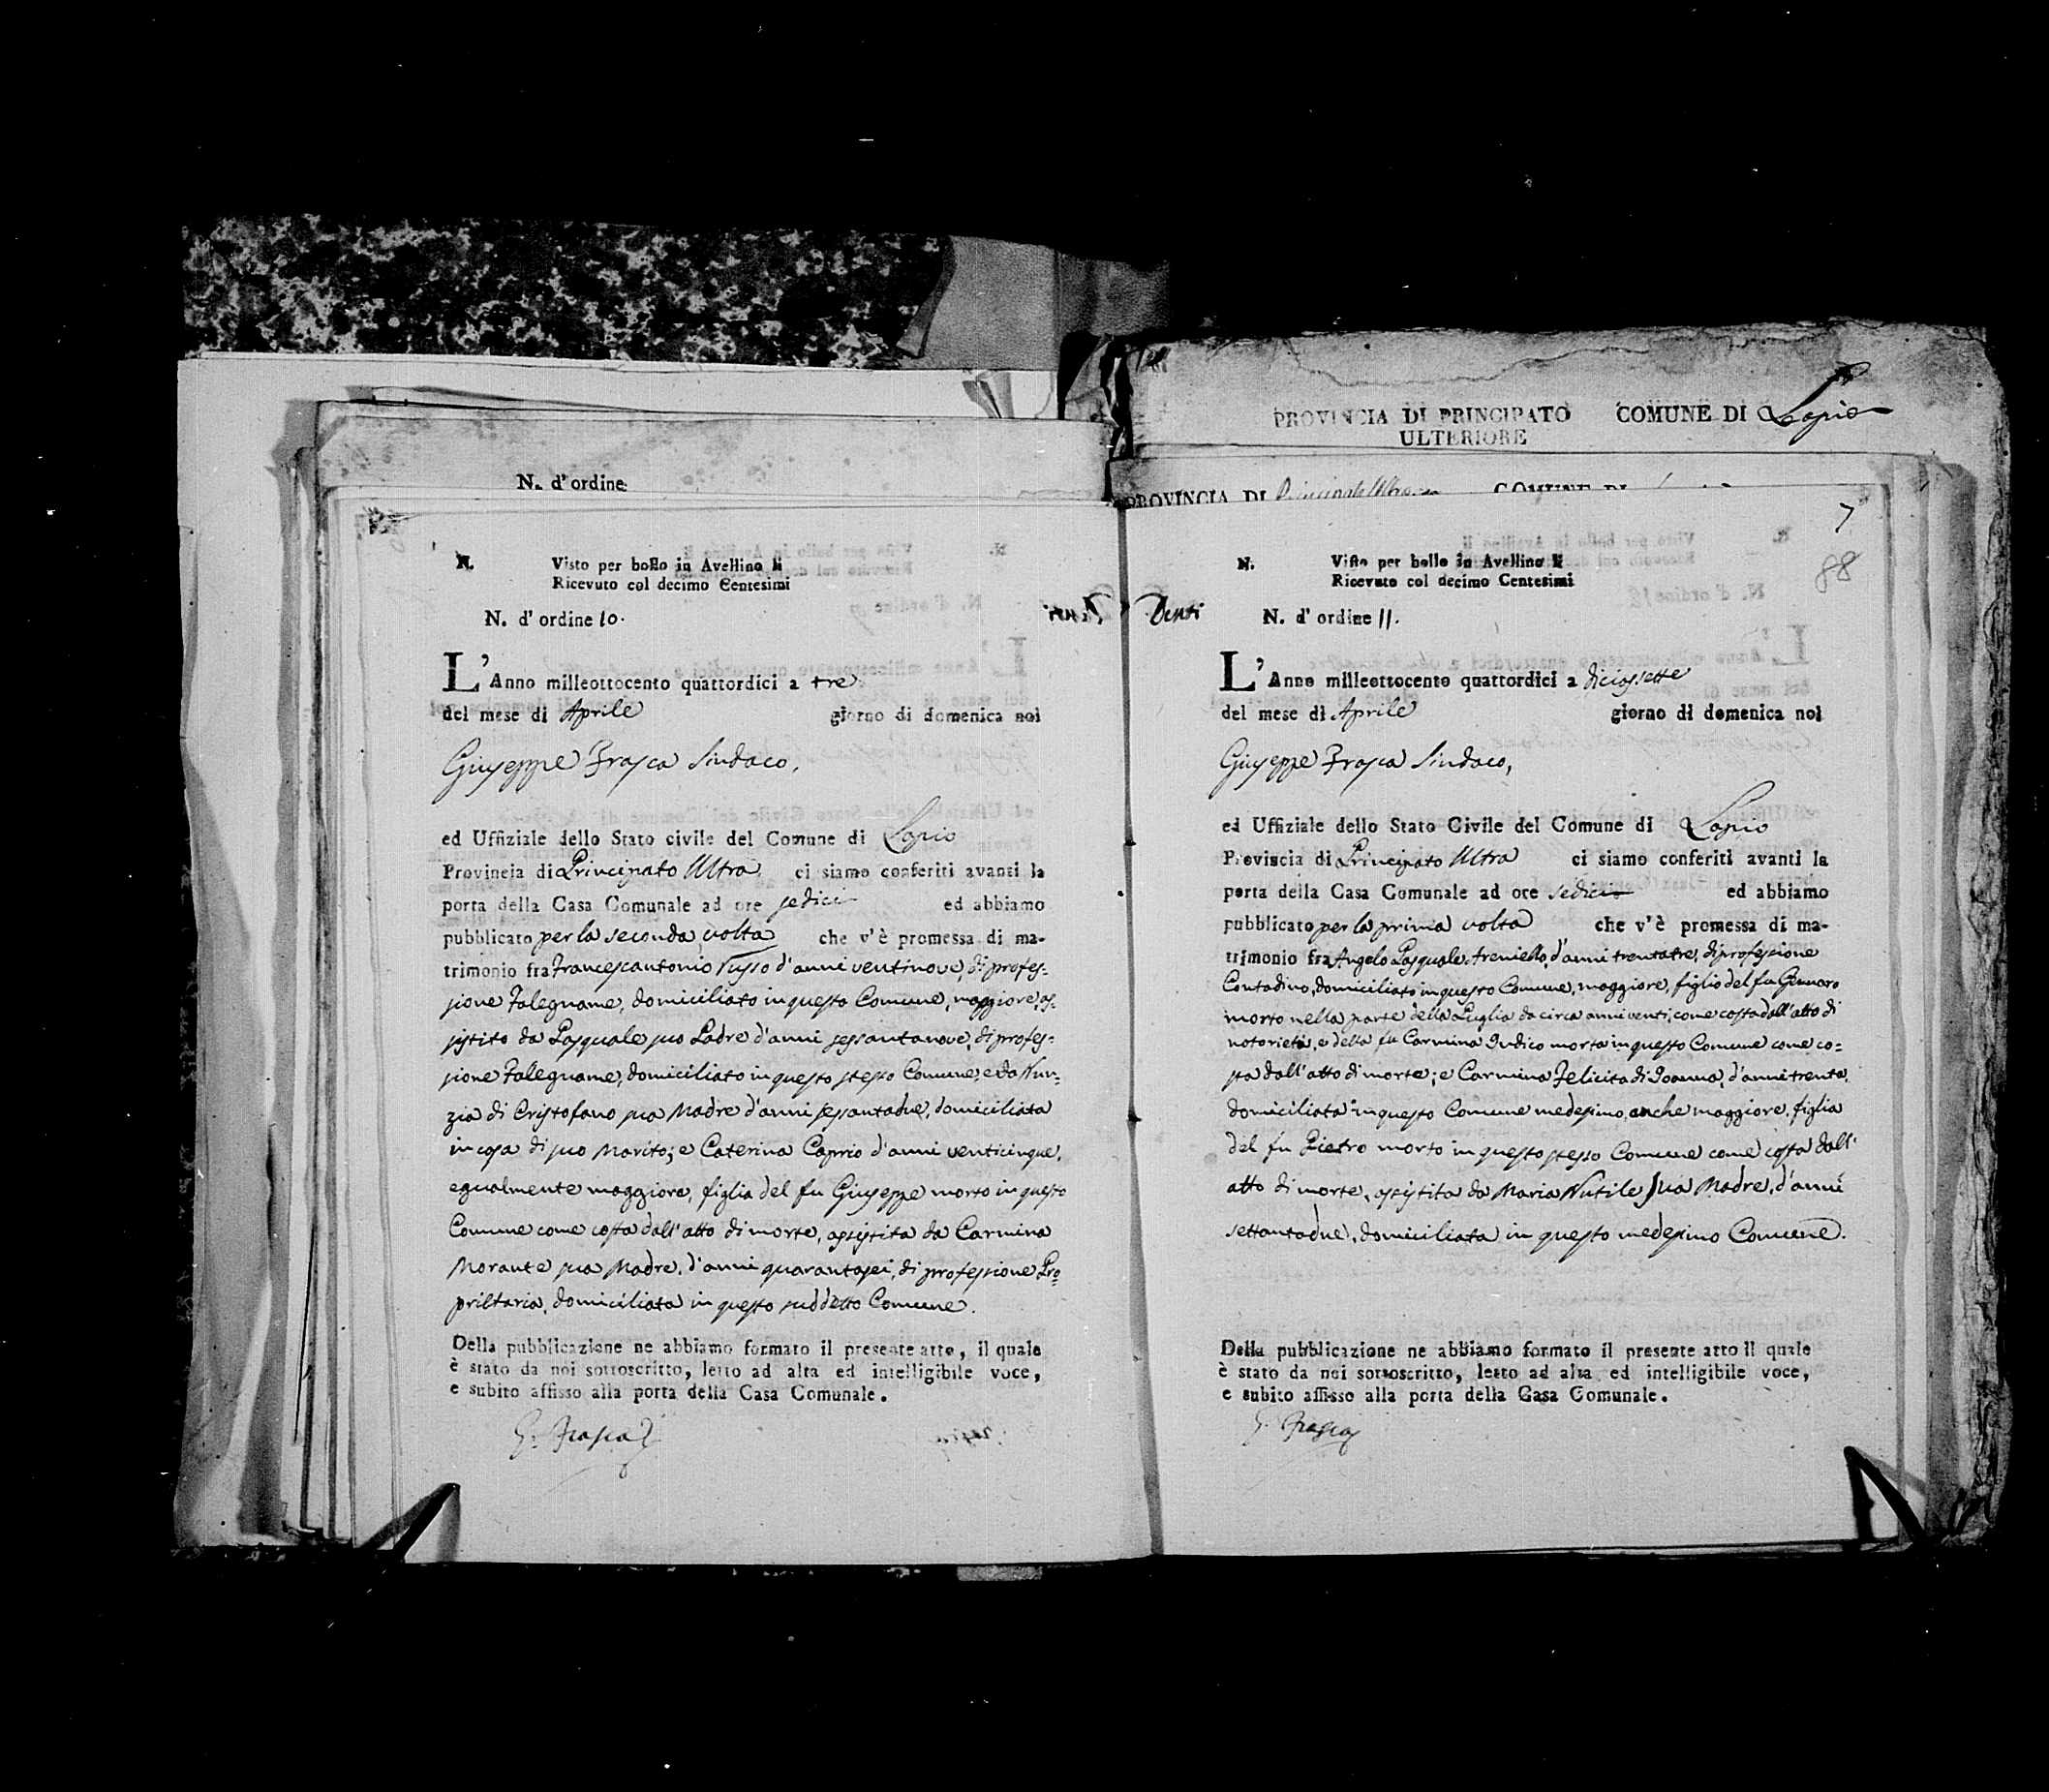 PROVINCIA DI PRINCIPATO ULTERIORE COMUNE DI Lapio
N. d'ordine
PROVINCIA DI COMUNE DI
N. Visto per bollo in Avellino li
Ricevuto col decimo Centesimi
N. d'ordine 10.
L'Anno milleottocento quattordici a tre
del mese di Aprile giorno di domenica noi
Giuseppe Frasca Sindaco,
ed Uffiziale dello Stato civile del Comune di Lapio
Provincia di Principato Ultra ci siamo conferiti avanti la
porta della Casa Comunale ad ore sedici ed abbiamo
pubblicato per la seconda volta che v'è promessa di ma-
trimonio fra Francescantonio Russo d'anni ventinove, di profes=
sione Falegname, domiciliato in questo Comune, maggiore, as=
sistito da Pasquale suo Padre d'anni sessantanove, di profes=
sione Falegname, domiciliato in questo stesso Comune, e da Nun=
zia di Cristofano sua Madre d'anni sessantadue, domiciliata
in casa di suo Marito; e Caterina Caprio d'anni venticinque,
egualmente maggiore, figlia del fu Giuseppe morto in questo
Comune come costa dall'atto di morte, assistita da Carmina
Morante sua Madre, d'anni quarantasei, di professione Pro=
prietaria, domiciliata in questo suddetto Comune.
Della pubblicazione ne abbiamo formato il presente atto, il quale
è stato da noi sottoscritto, letto ad alta ed intelligibile voce,
e subito affisso alla porta della Casa Comunale.
G. Frasca
7
88
N. Visto per bollo in Avellino li
Ricevuto col decimo Centesimi
N. d'ordine 11.
L'Anno milleottocento quattordici a diciassette
del mese di Aprile giorno di domenica noi
Giuseppe Frasca Sindaco,
ed Uffiziale dello Stato Civile del Comune di Lapio
Provincia di Principato Ultra ci siamo conferiti avanti la
porta della Casa Comunale ad ore sedici ed abbiamo
pubblicato per la prima volta che v'è promessa di ma-
trimonio fra Angelo Pasquale Areniello, d'anni trentatre, di professione
Contadino, domiciliato in questo Comune, maggiore, figlio del fu Gennaro
morto nella parte della Puglia da circa anni venti, come costa dall'atto di
notorietà, e della fu Carmina Iudico morta in questo Comune come co=
sta dall'atto di morte; e Carmina Felicita di Joanna, d'anni trenta,
domiciliata in questo Comune medesimo, anche maggiore, figlia
del fu Pietro morto in questo stesso Comune come costa dall'
atto di morte, assistita da Maria Nutile sua Madre, d'anni
settantadue, domiciliata in questo medesimo Comune.
Della pubblicazione ne abbiamo formato il presente atto il quale
è stato da noi sottoscritto, letto ad alta ed intelligibile voce,
e subito affisso alla porta della Casa Comunale.
G. Frasca